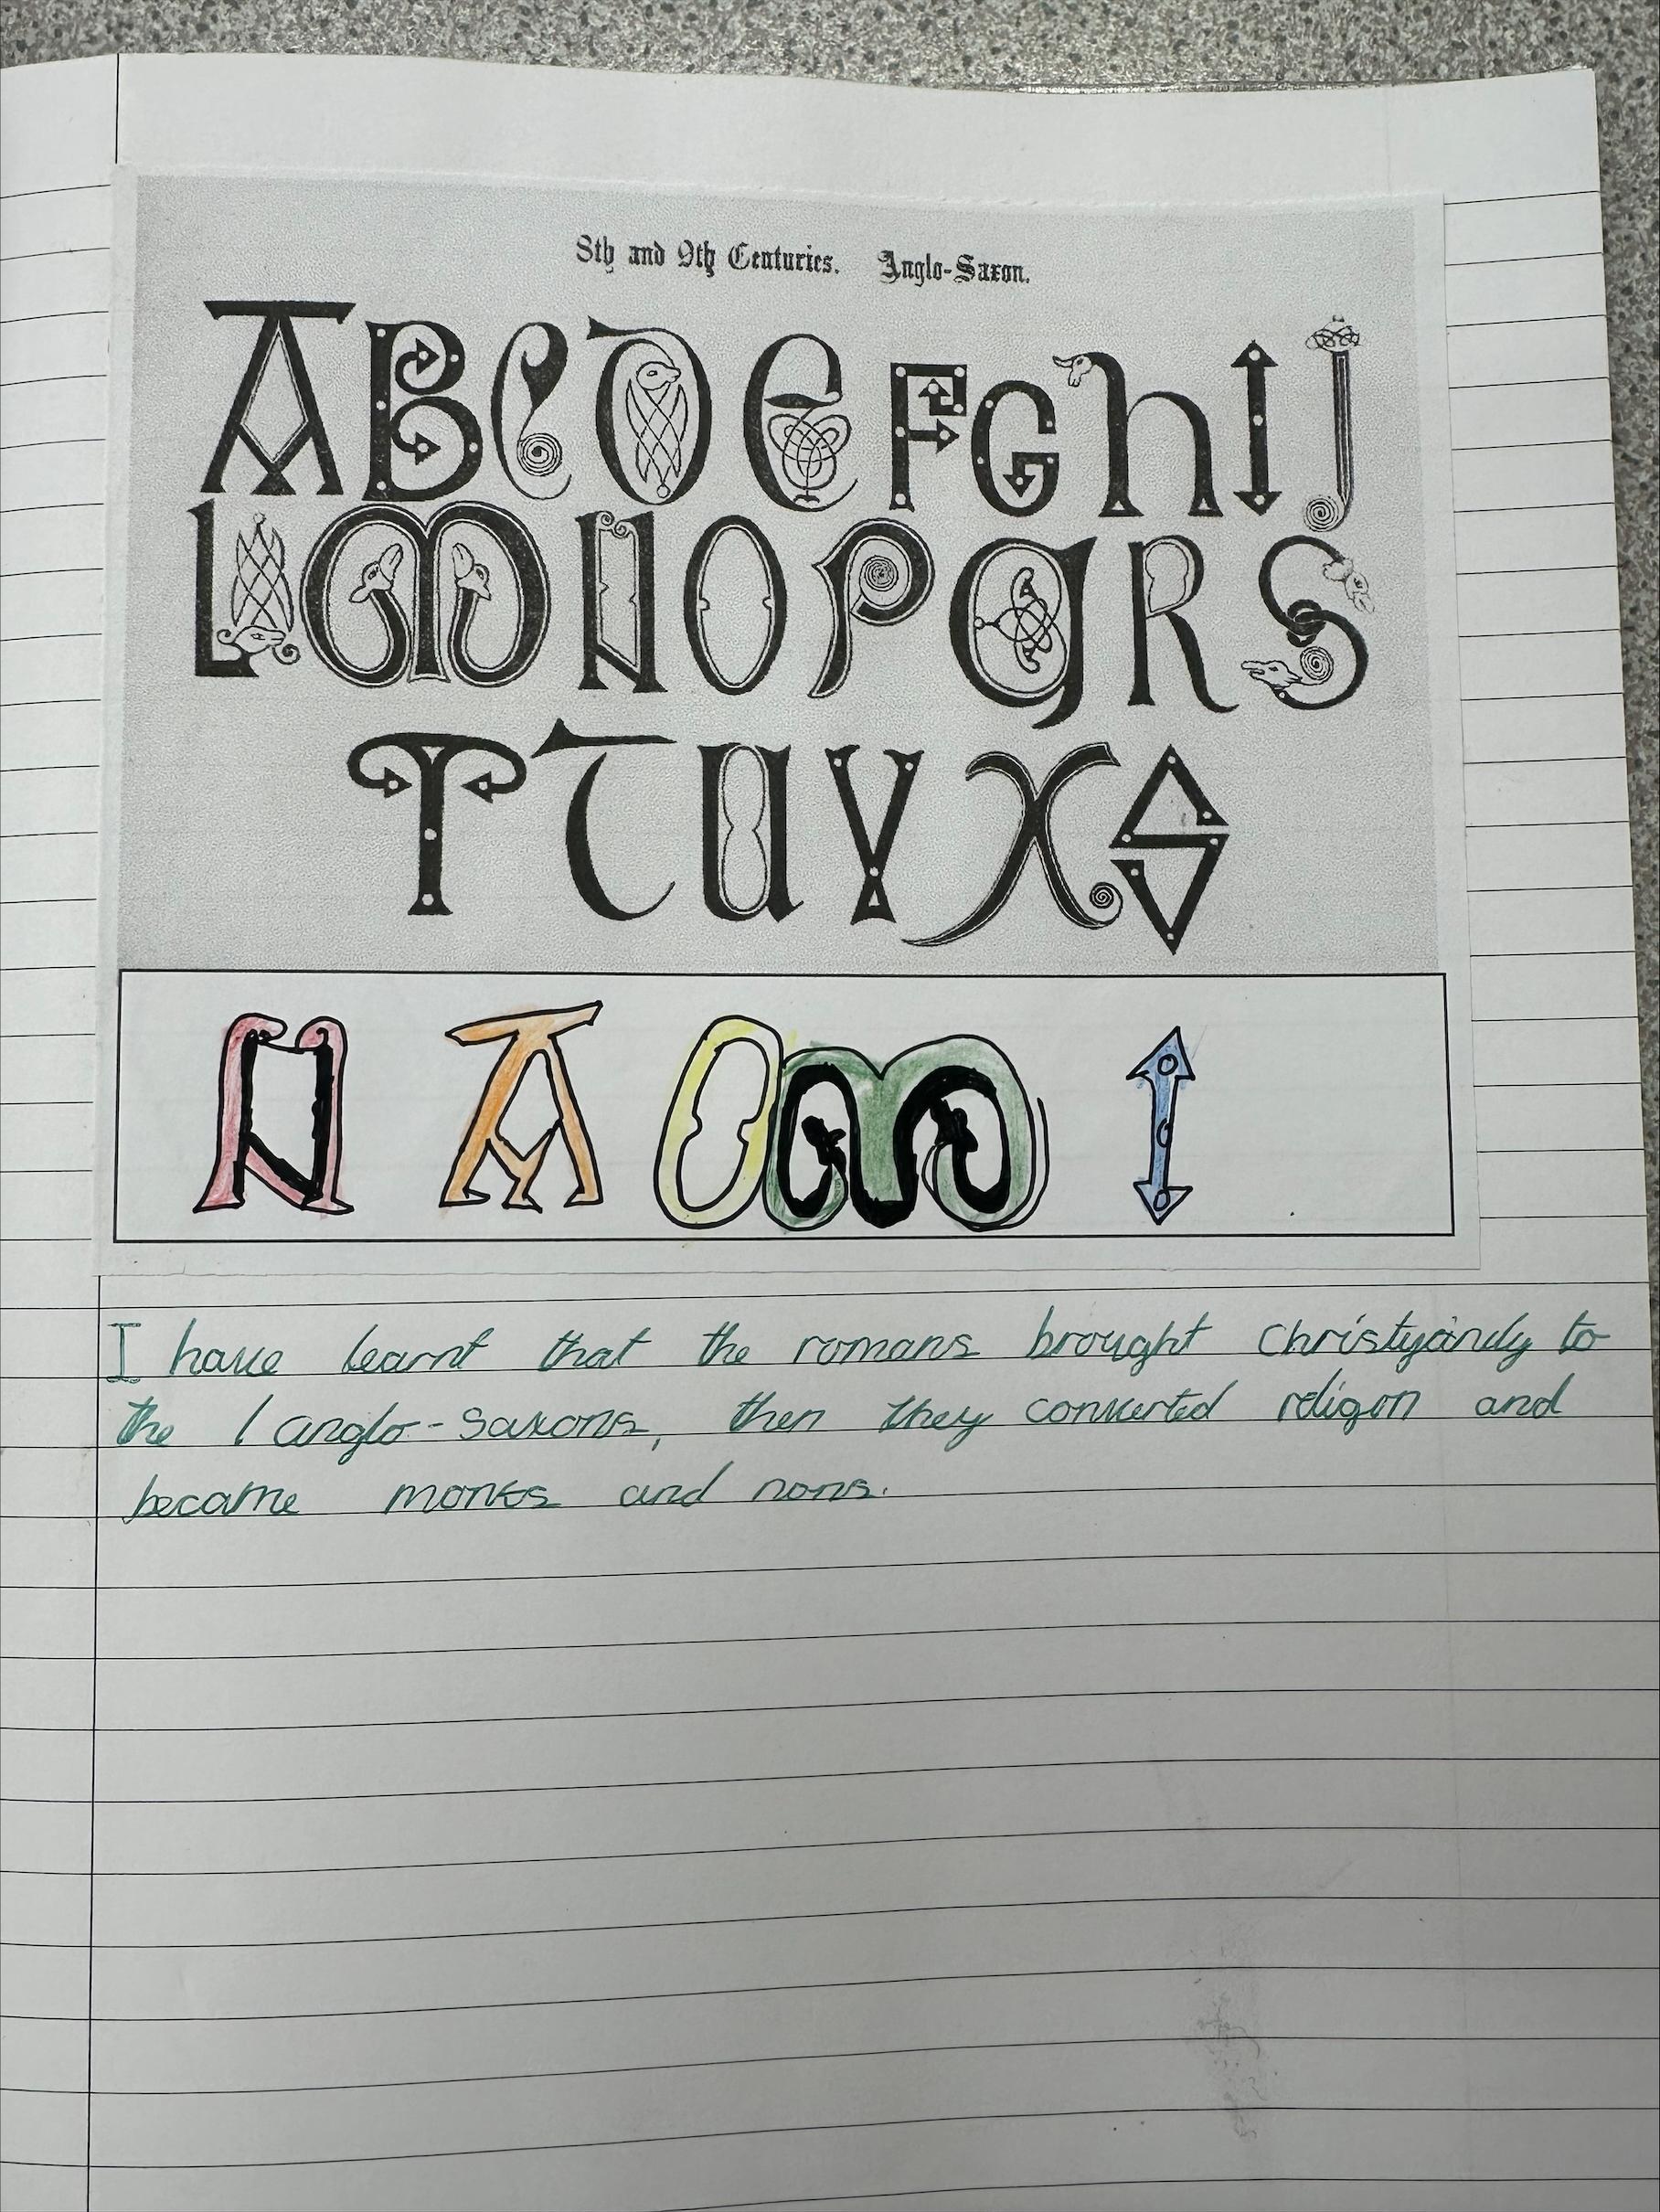 8th and 9th Centuries. Anglo-Saxon.
A B C D E F G h I J
L M N O P Q R S
T T U V X S
N A O M I
I have learnt that the romans brought christyandy to
the / anglo-saxons, then they converted religon and
became monks and nons.